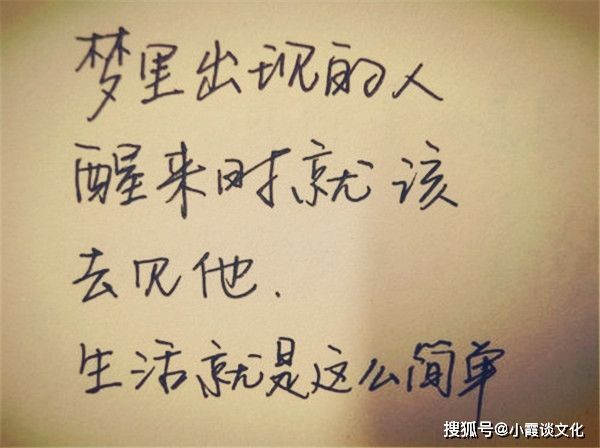 梦里出现的人
醒来时就该
去见他.
生活就是这么简单
搜狐号@小霞谈文化